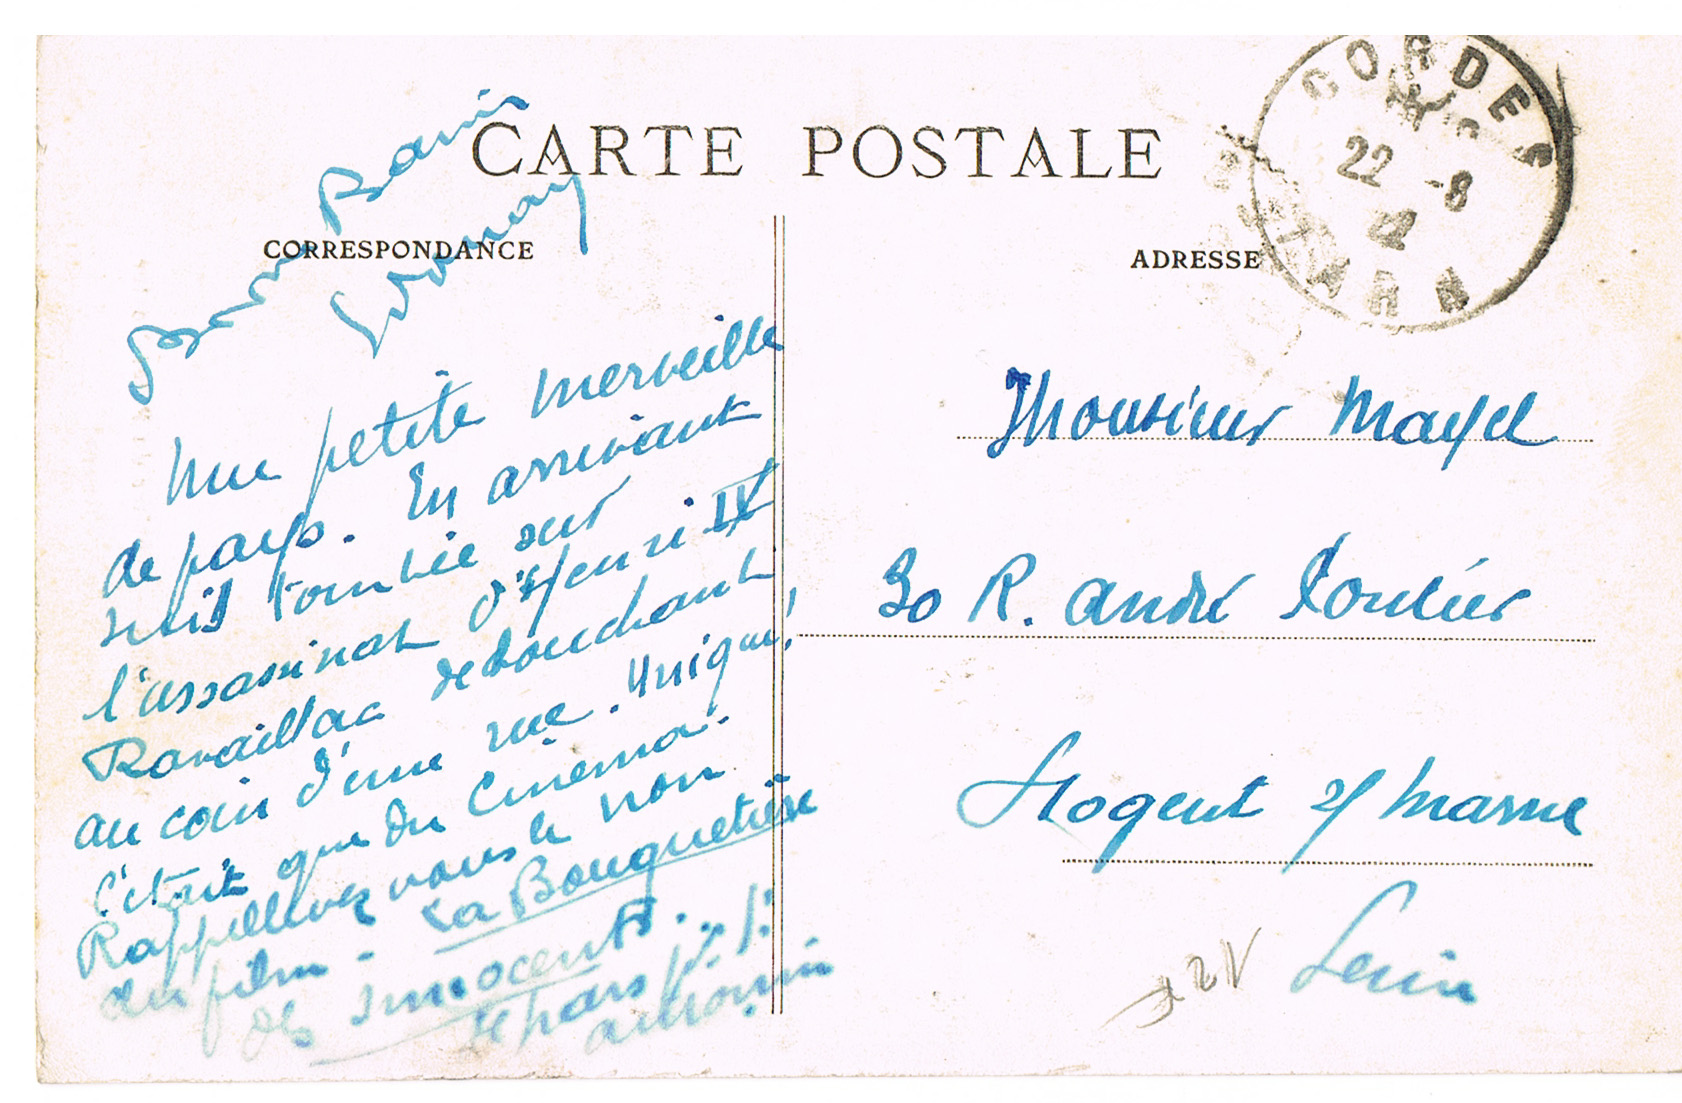 CARTE POSTALE
CORRESPONDANCE
ADRESSE
CORDES
22 -8
22
TARN
Une petite merveille
de pays. En arrivant
suis tombée sur
l'assassinat d'Henri IV
Ravaillac debouchant
au coin d'une rue. Unique!
C'était que du Cinema.
Rappellevez vous le nom
du film - La Bouquetière
des Innocents...
Je pars p. p.
Monsieur Mayel
30 R. André
Nogent s/ Marne
Seine